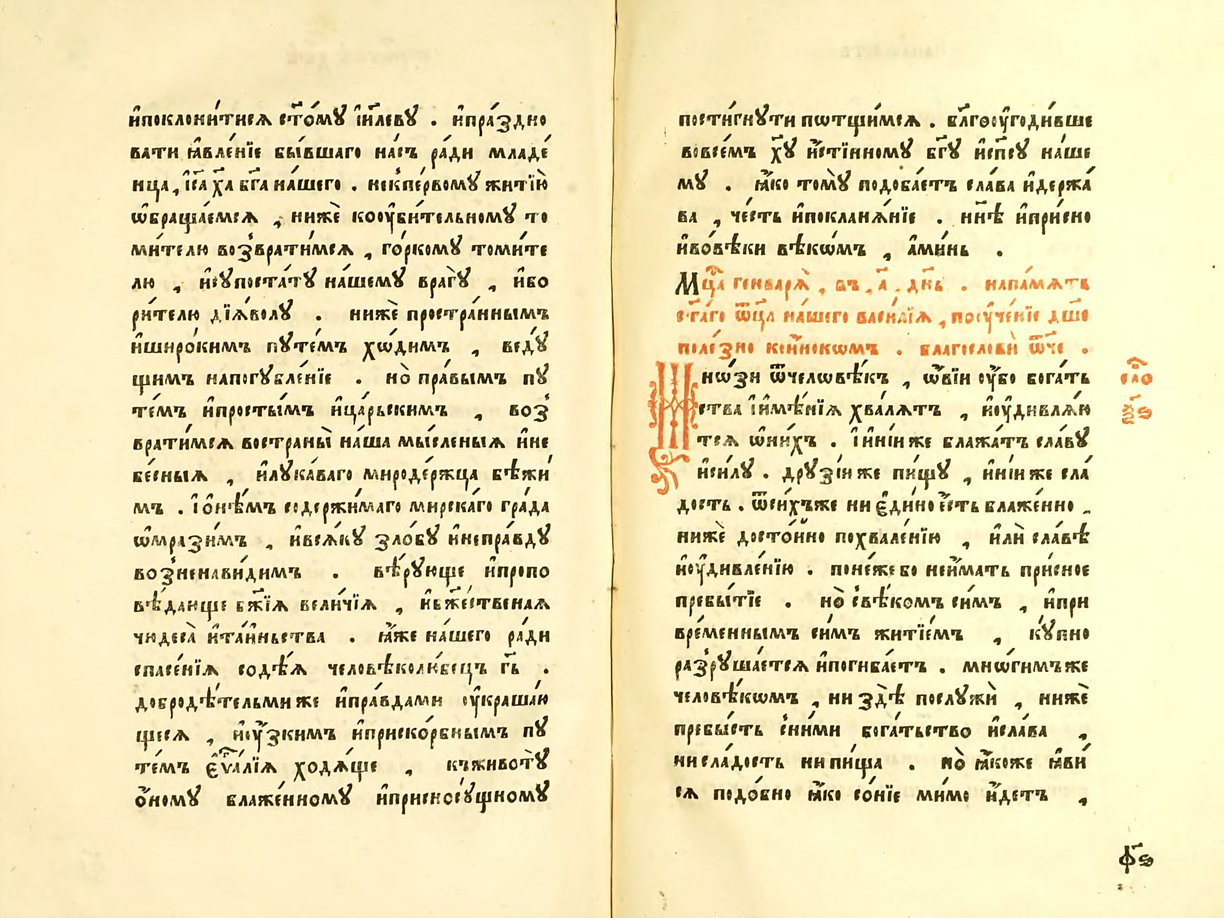 и҆поклони́тисѧ ст҃о́мꙋ і҆и҃левꙋ . и҆пра́здно
вати ꙗ҆вле́нїе бы́вшаго на́съ ра́ди младе́
нца , і҆с҃а х҃а бг҃а на́шего . некпе́рвомꙋ житїю̀
ѡ҆браща́емсѧ , нижѐ коᲂу҆би́тельномꙋ то
мителю возврати́мсѧ , го́ркомꙋ томи́те
лю , и҆сꙋпоста́тꙋ на́шемꙋ врагꙋ̀ , и҆бо
ри́телю дїѧ́волꙋ . нижѐ простра́ннымъ
и҆широ́кимъ пꙋте́мъ хѡ́димъ , ведꙋ́
щимъ напогꙋбле́нїе . но̀ пра́вымъ пꙋ
те́мъ и҆просты́мъ и҆ца́рьскимъ , воз
врати́мсѧ востраны̀ на́ша мы́сленыѧ и҆не
бе́сныѧ , и҆лꙋка́ваго мироде́ржца бѣжи́
мъ . і҆о҆не́мъ содержи́маго мирска́го гра́да
ѡ҆мрази́мъ , и҆всѧ́кꙋ зло́бꙋ и҆непра́вдꙋ
возненави́димъ . вѣ́рꙋюще и҆пропо
вѣ́дающе бж҃їѧ вели́чїѧ , и҆бж҃е́ственаѧ
чюдеса̀ и҆та́иньства . ꙗ҆́же на́шего ра́ди
спасе́нїѧ содѣ́ѧ человѣколю́бецъ гь҃ .
добродѣ́тельми же и҆пра́вдами ᲂу҆краша́ю
щесѧ , и҆ᲂу҆́зкимъ и҆приско́рбнымъ пꙋ
те́мъ є҆ѵ҃а́лїѧ ходѧ́ще , къживотꙋ̀
о҆́номꙋ блаже́нномꙋ и҆присносꙋ́щномꙋ
пости́гнꙋти пѡтщи́мсѧ . бл҃гоᲂу҆годи́вше
вовсе́мъ х҃ꙋ и҆́стїнномꙋ бг҃ꙋ и҆сп҃сꙋ на́ше
мꙋ . ꙗ҆́ко томꙋ̀ подоба́етъ сла́ва и҆держа́
ва , че́сть и҆покланѧ́нїе . нн҃ѣ и҆при́сно
и҆вовѣ́ки вѣкѡ́мъ , а҆ми́нь .
Мц҃а генварѧ̀ , въ , а҃ , дн҃ь . напа́мѧть
ст҃а́го ѻ҆ц҃а на́шего васи́лїѧ , поᲂу҆че́нїе дш҃е
поле́зно ки҆́нокѡмъ . благословѝ ѻ҆́ч҃е .
Мнѡ́зи ѿчеловѣ́къ , ѡ҆́вїи ᲂу҆́бо бога́ть
ства і҆и҆мѣ́нїѧ хва́лѧтъ , и҆ᲂу҆дивлѧ́ю
тсѧ ѡ҆ни́хъ . і҆ині́и же блажа́тъ сла́вꙋ
и҆си́лꙋ . дрꙋзі́и же пи́щꙋ , и҆ні́и же сла́
дость . ѿси́хъже ни є҆ди́но е҆́сть блаже́нно ,
нижѐ досто́йно похвале́нїю , и҆лѝ сла́вѣ
и҆ᲂу҆дивле́нїю . поне́же бо неи҆́мать при́сное
пребы́тїе . но̀ свѣ́комъ си́мъ , и҆при
вре́меннымъ си́мъ житїе́мъ , кꙋ́пно
разрꙋша́етсѧ и҆погиба́етъ . мнѡ́гимъже
человѣ́кѡмъ , ни здѣ̀ послꙋжѝ , нижѐ
пребы́сть сни́ми бога́тьство и҆сла́ва ,
ни сла́дость ни пи́ща . но̀ ꙗ҆́коже ꙗ҆ви́
сѧ подо́бно ꙗ҆́ко со́нїе ми́мо и҆де́тъ ,
сло
фѕ҃